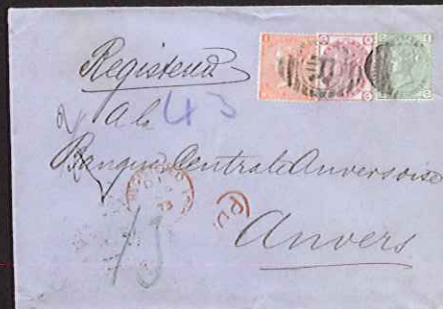 Registered
A la 43
Banque Centrale Anversoise
PD
Anvers